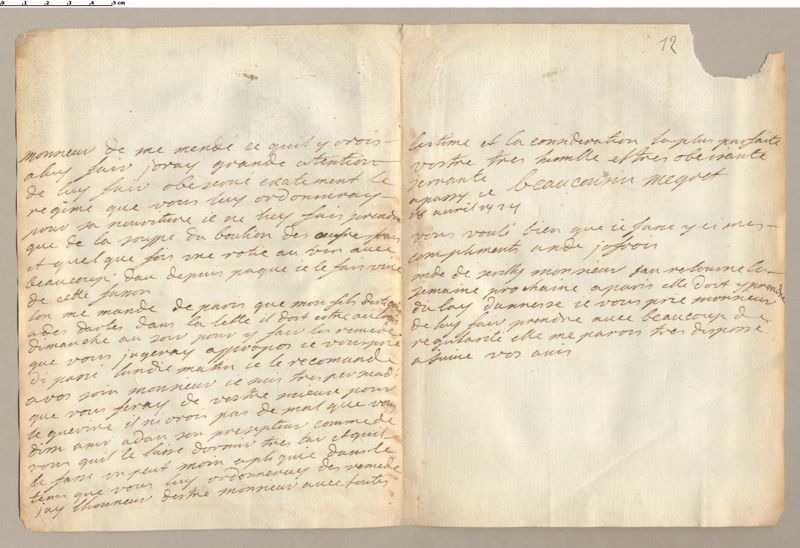 0 1 2 3 4 5 cm
12
monneur de me mendé ce quil y orois
a luy fair joray grande atention
de luy fair observé exatement le
regime que vous luy ordonneray
pour sa nouriture ie ne luy fais prendre
que de la soupe du boulion des pain
et quelque fois vne rotie au vin avec
beaucoup dau depuis paque ie le fais vivre
de cette fason
lon me mande de paris que mon fils
a des dartes dans la tette il doit estre
dimanche au soir pour y fair les remede
que vous jugeray appropos ie vous prie
di passé lundie matin ie le recomande
a vos soin monsieur ie suis tres persuad
que vous feray de vostre mieuse pour
le guerire il niorois pas de mal que vous
son presepteur comme de
vous quil le laise dormir tres tar et quil
le fase un peut moin apliquié dans le
tems que vous luy ordonneray des remede
jay lhonneur destre monsieur avec toutes
lestime et la consideration la plus parfaite
vostre tres humble et tres obeisante
servante beaucousin megret
a passy ce
avril 1724
vous voulé bien que ie fase y ci mes
compliments
mde de monsieur sau retourne la
semaine prochaine a paris elle doit y prendre
du lay dannesse ie vous prie monsieur
de luy fair prendre avec beaucoup de
regularite elle me parois tres disposé
a suivre vos avis